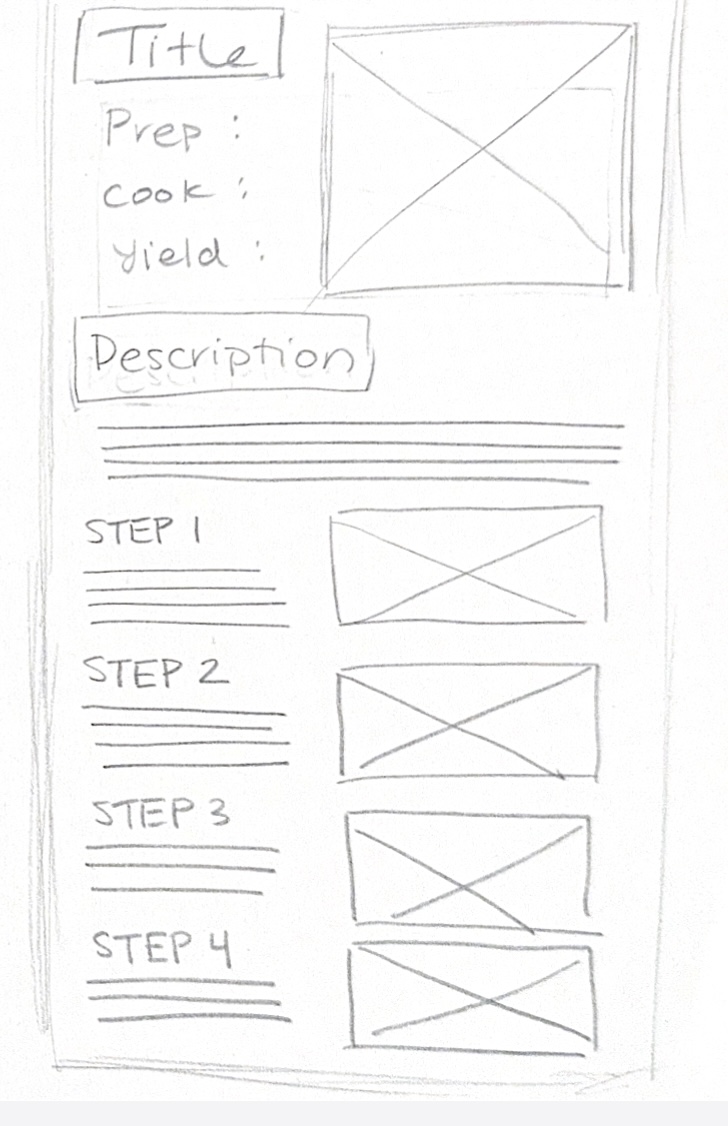 Title
Prep :
Cook :
Yield :
Description
STEP 1
STEP 2
STEP 3
STEP 4